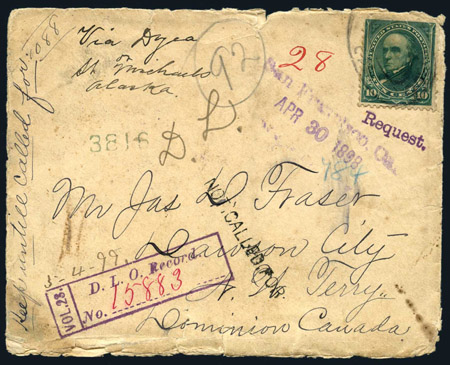 Via Dyea
or
St. Michaels
Alaska
Keep untill called for.
1088
92
28
San Francisco, Cal.
APR 30 1898
Request.
10 10
3816
D L
NOT CALLED FOR.
Mr Jas D Fraser
Dawson City
N. W. Terry
Dominion Canada
5-4-99
VOL. 28.
D. L. O. Record
No. 15883